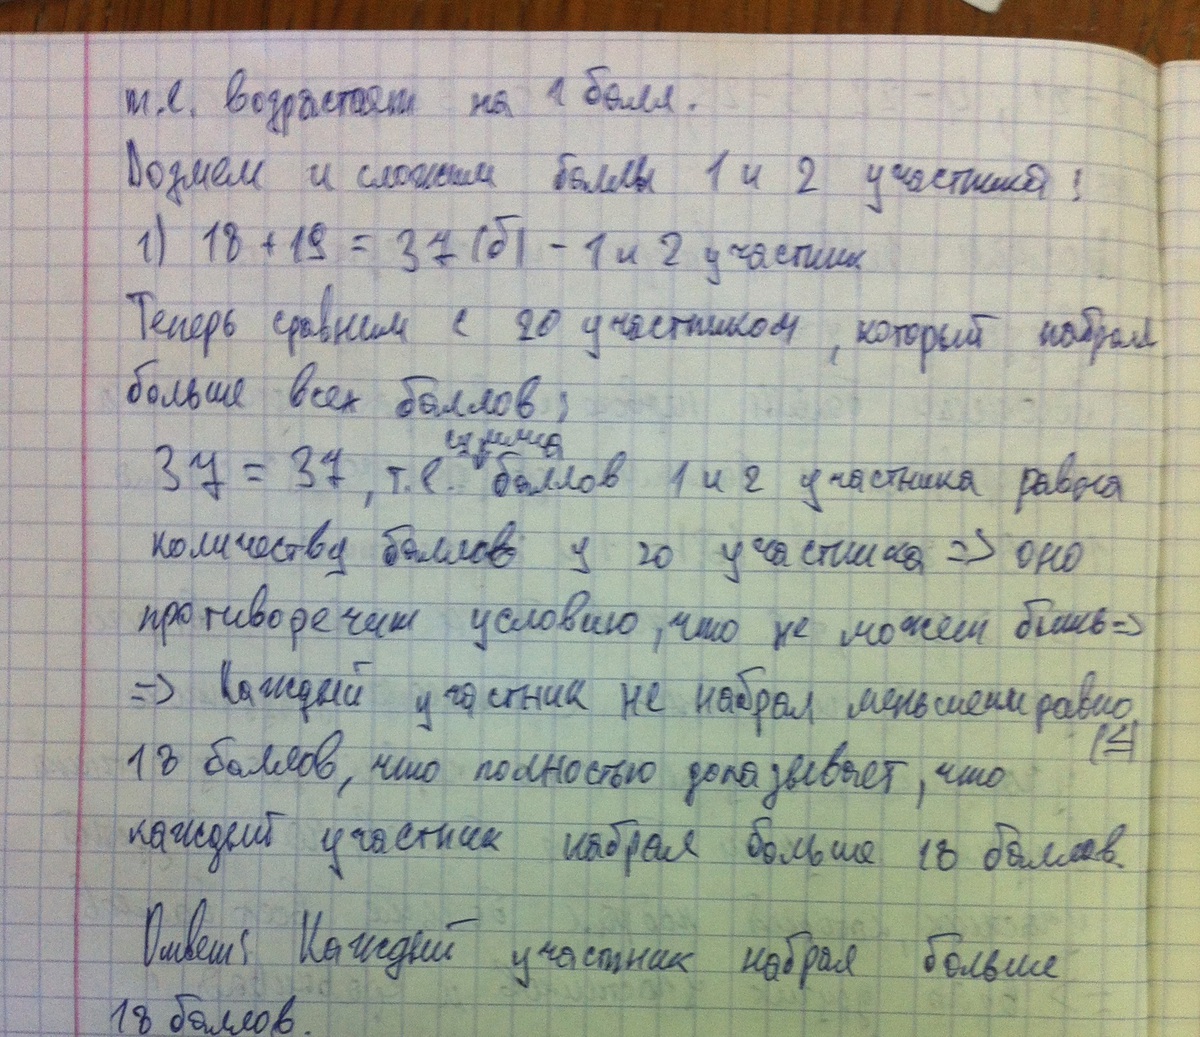 т.е. возрастает на 1 балл.
Возмем и сложим баллы 1 и 2 участника:
1) 18 + 19 = 37 (б) - 1 и 2 участник
Теперь сравним с 20 участником, который набрал
больше всех баллов:
сумма
37 = 37, т.е. баллов 1 и 2 участника равна
количеству баллов у 20 участника => оно
противоречит условию, что не может быть =>
=> Каждый участник не набрал меньше или равно
(≤)
18 баллов, что полностью доказывает, что
каждый участник набрал больше 18 баллов.
Ответ: Каждый участник набрал больше
18 баллов.